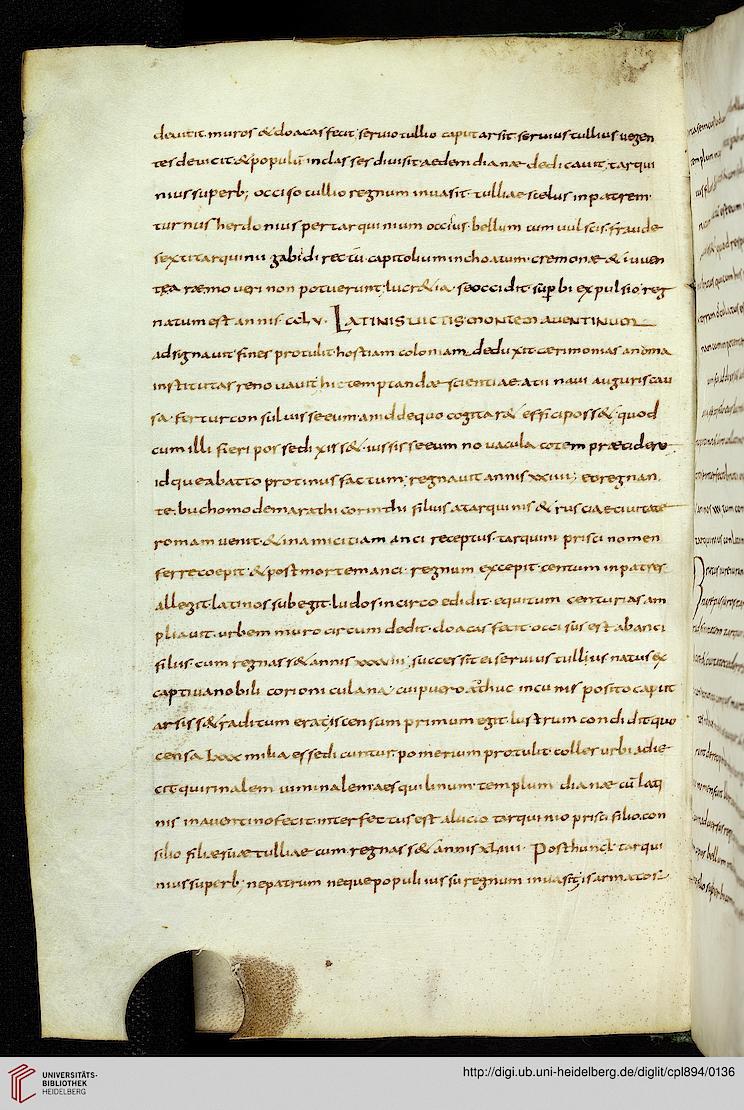 deuicit. muros & cloacas fecit; seruio tullio caput arsit. seruius tullius uegen
tes deuicit. & populū in classes diuisit. aedem dianae dedicauit. tarqui
nius superb; occiso tullio regnum inuasit. tulliae scelus in patrem.
turnus herdonius per tarquinium occisus. bellum cum uulscis. fraude
sexti tarquinii gabi direcū. capitolium inchoatum. cremonae & iuuen
tae moueri non potuerunt; lucr&ia se occidit. suꝑbi expulsio. reg
natum est annis cclv. LATINIS UICTIS. MONTEM AUENTINUM
adsignauit. fines protulit. hostiam coloniam deduxit. caerimonias a numa
institutas renouauit. hic temptandae scientiae atii naui auguris cau
sa. fertur consuluisse eum an id de quo cogitar& effici poss&; quod
cum ille fieri posse dixiss&. iussisse eum nouacula cotem praecidere.
idque ab atto protinus factum; regnauit annis xxiiii; eo regnan
te. lucumo demarathi corinthii filius a tarquiniis &rusciae ciuitate
romam uenit. & in amicitiam anci receptus. tarquini prisci nomen
ferre coepit. & post mortem anci. regnum excepit. centum in patres
allegit. latinos subegit. ludos in circo edidit. equitum centurias am
pliauit. urbem muro circumdedit. cloacas fecit. occisus est ab anci
filiis. cum regnass& annis xxxviii; successit ei seruius tullius natus ex
captiua nobili corniculana; cui puero adhuc in cunis posito caput
arsiss& traditum erat; is censum primum egit. lustrum condidit. quo
censa lxxx milia esse dicuntur. pomerium protulit. colles urbi adie
cit. quirinalem uiminalem aesquilinum. templum dianae cū lati
nis in auentino fecit. interfectus est a lucio tarquinio prisci filio. con
silio filiae suae tulliae cum regnass& annis xliiii. Post hunc l. tarqui
nius superb; ne patrum neque populi iussu regnum inuasit; is armatos
UNIVERSITÄTS-
BIBLIOTHEK
HEIDELBERG
http://digi.ub.uni-heidelberg.de/diglit/cpl894/0136